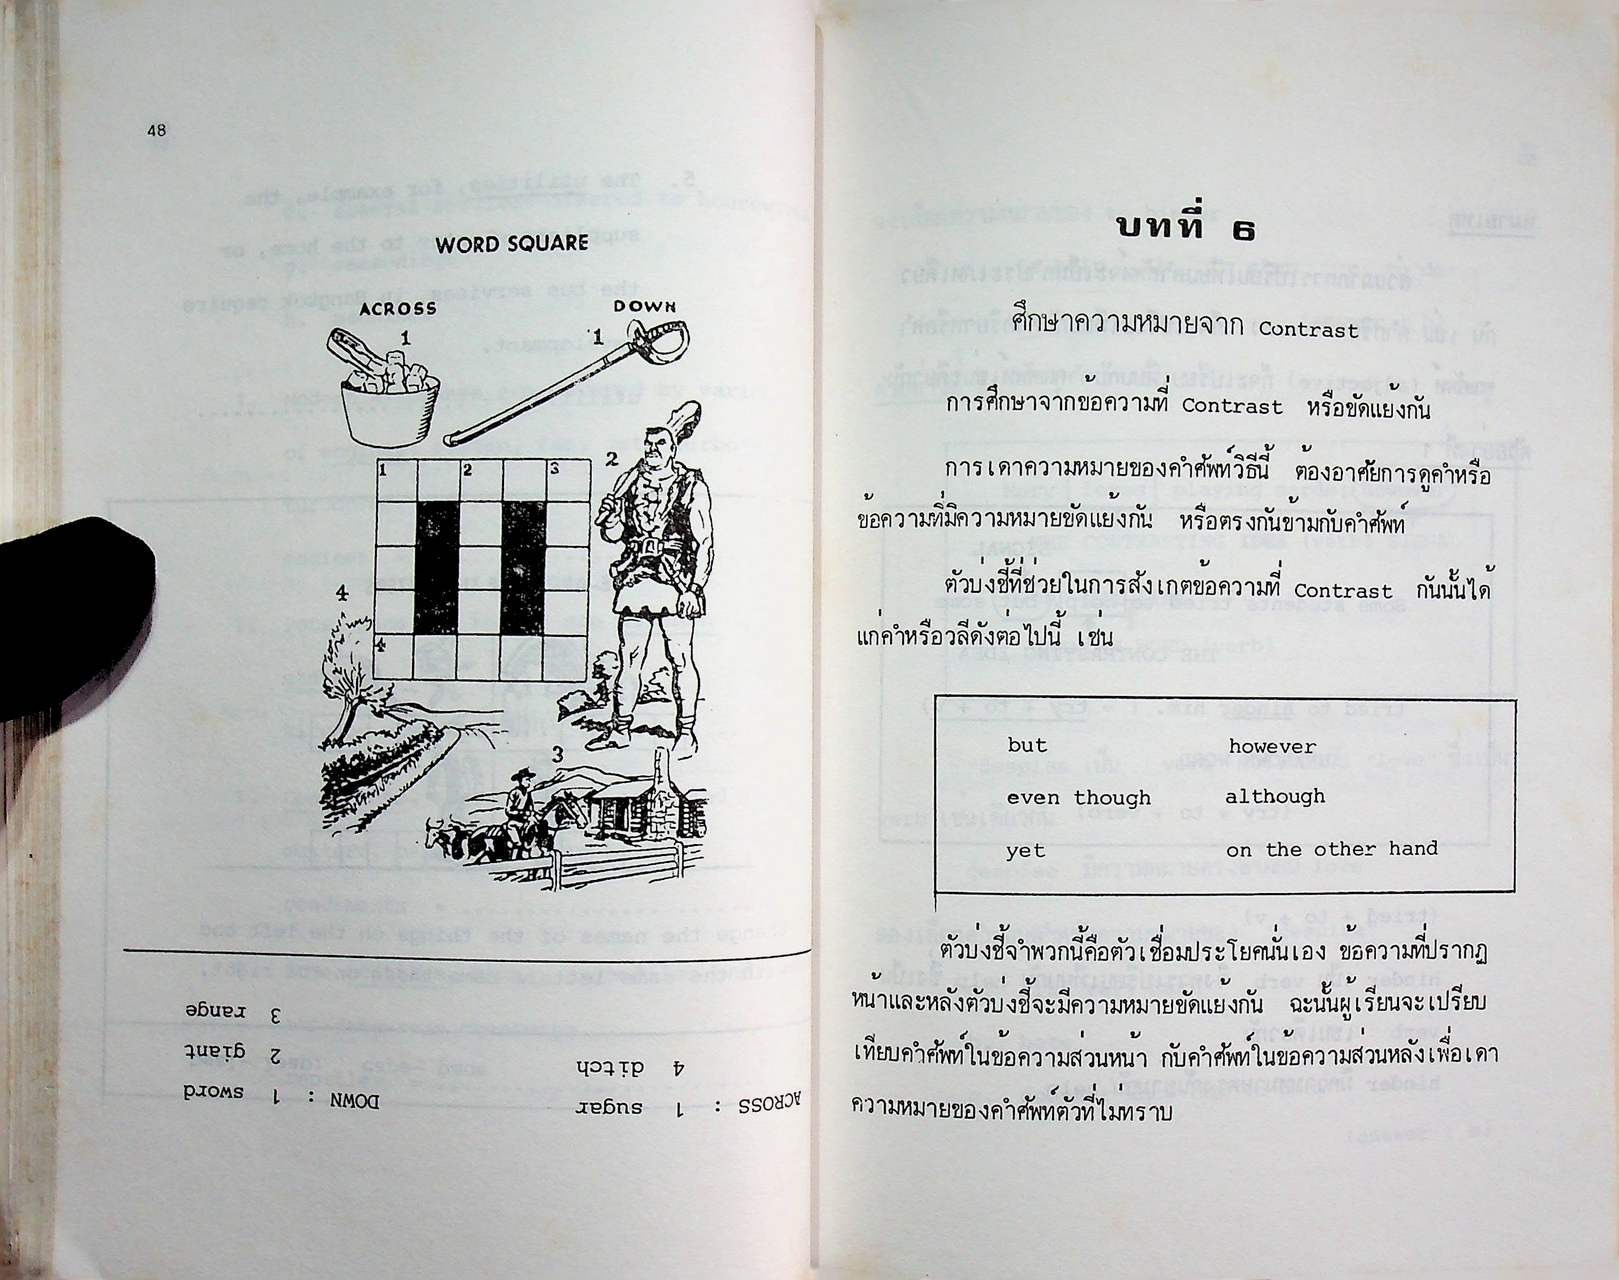 48
WORD SQUARE
ACROSS
DOWN
1
1
1
2
3
2
4
4
3
ACROSS : 1 sugar
4 ditch
DOWN : 1 sword
2 giant
3 range
บทที่ 6
ศึกษาความหมายจาก Contrast
การศึกษาจากข้อความที่ Contrast หรือขัดแย้งกัน
การเดาความหมายของคำศัพท์วิธีนี้ ต้องอาศัยการดูคำหรือ
ข้อความที่มีความหมายขัดแย้งกัน หรือตรงกันข้ามกับคำศัพท์
ตัวบ่งชี้ที่ช่วยในการสังเกตข้อความที่ Contrast กันนั้นได้
แก่คำหรือวลีดังตอไปนี้ เช่น
but however
even though although
yet on the other hand
ตัวบ่งชี้จำพวกนี้คือตัวเชื่อมประโยคนั่นเอง ข้อความที่ปรากฏ
หน้าและหลังตัวบ่งชี้จะมีความหมายขัดแย้งกัน ฉะนั้นผู้เรียนจะเปรียบ
เทียบคำศัพท์ในข้อความส่วนหน้า กับคำศัพท์ในข้อความส่วนหลังเพื่อเดา
ความหมายของคำศัพท์ตัวที่ไม่ทราบ